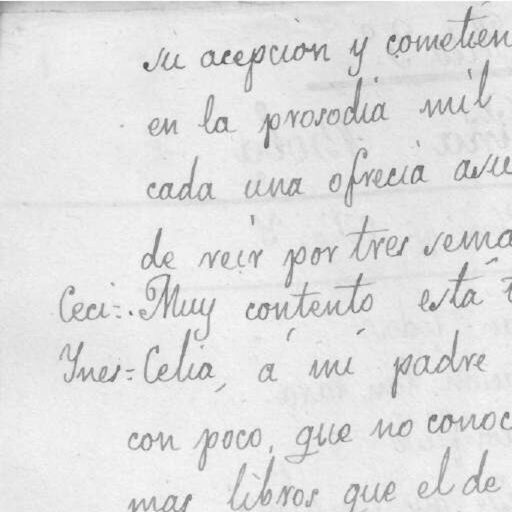 su acepcion y cometien
en la prosodia mil
cada una ofrecia asu
de reir por tres sema
Ceci=. Muy contento esta
Ynes=Celia, á mi padre
con poco, que no conoc
mas libros que el de